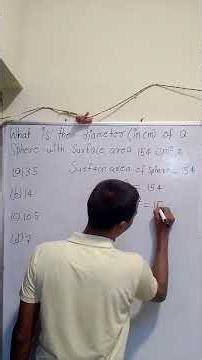 What is the diameter (in cm) of a
sphere with surface area 154 cm² ?
(a) 3.5
Surface area of sphere = 154
(b) 14
= 154
(c) 10.5
= 15
(d) 7